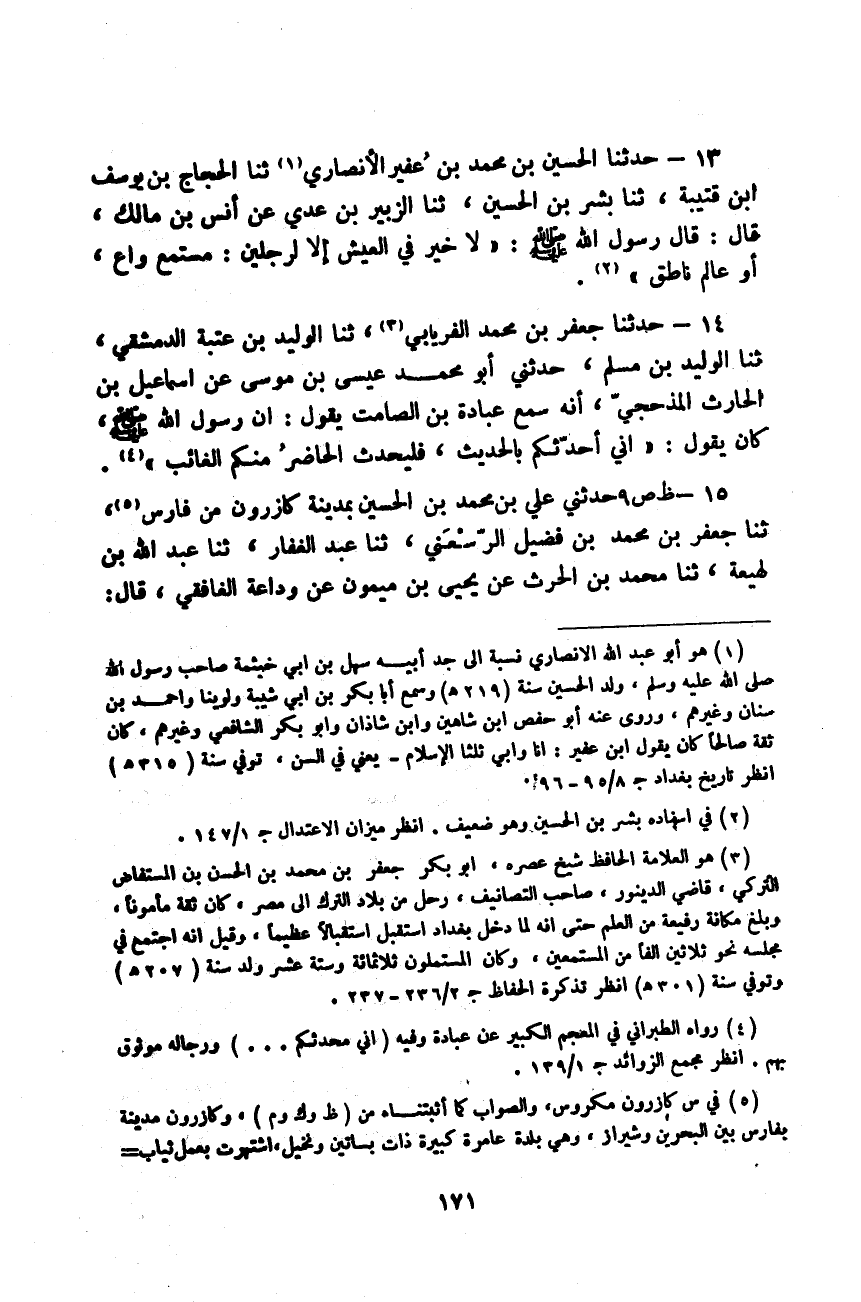 ١٣ – حدثنا الحسين بن محمد بن ُعفير الأنصاري(١) ثنا الحجاج بن يوسف
ابن قتيبة ، ثنا بشر بن الحسين ، ثنا الزبير بن عدي عن أنس بن مالك ،
قال : قال رسول الله ﷺ : « لا خير في العيش إلا لرجلين : مستمع واع ،
أو عالم ناطق » (٢) .
١٤ – حدثنا جعفر بن محمد الفريابي(٣) ، ثنا الوليد بن عتبة الدمشقي ،
ثنا الوليد بن مسلم ، حدثني أبو محمـــد عيسى بن موسى عن اسماعيل بن
الحارث المذحجيّ ، أنه سمع عبادة بن الصامت يقول : ان رسول الله ﷺ ،
كان يقول : « اني أحدّثكم بالحديث ، فليحدث الحاضرُ منكم الغائب »(٤) .
١٥ – ظ ص ٩ حدثني علي بن محمد بن الحسين بمدينة كازرون من فارس(٥) ،
ثنا جعفر بن محمد بن فضيل الرّسْعَني ، ثنا عبد الغفار ، ثنا عبد الله بن
لهيعة ، ثنا محمد بن الحرث عن يحيى بن ميمون عن وداعة الغافقي ، قال :
(١) هو أبو عبد الله الانصاري نسبة الى جد أبيـــه سهل بن ابي خيثمة صاحب رسول الله
صلى الله عليه وسلم ، ولد الحسين سنة (٢١٩ ھ) وسمع أبا بكر بن ابي شيبة ولوينا واحمـــد بن
سنان وغيرهم ، وروى عنه أبو حفص ابن شاهين وابن شاذان وابو بكر الشافعي وغيرهم ، كان
ثقة صالحاً كان يقول ابن عفير : انا وابي ثلثا الإسلام – يعني في السن ، توفي سنة ( ٣١٥ ھ )
انظر تاريخ بغداد ج ٩٥/٨ – ٩٦ .
(٢) في اسناده بشر بن الحسين وهو ضعيف . انظر ميزان الاعتدال ج ١٤٧/١ .
(٣) هو العلامة الحافظ شيخ عصره ، ابو بكر جعفر بن محمد بن الحسن بن المستفاض
التركي ، قاضي الدينور ، صاحب التصانيف ، رحل من بلاد الترك الى مصر ، كان ثقة مأموناً ،
وبلغ مكانة رفيعة من العلم حتى انه لما دخل بغداد استقبل استقبالاً عظيماً ، وقيل انه اجتمع في
مجلسه نحو ثلاثين الفاً من المستمعين ، وكان المستملون ثلاثمائة وستة عشر ولد سنة ( ٢٠٧ ھ )
وتوفي سنة (٣٠١ ھ) انظر تذكرة الحفاظ ج ٢٣٦/٢ – ٢٣٧ .
(٤) رواه الطبراني في المعجم الكبير عن عبادة وفيه ( اني محدثكم . . . ) ورجاله موثوق
بهم . انظر مجمع الزوائد ج ١٣٩/١ .
(٥) في س كازرون مكروس، والصواب كما أثبتنـــاه من ( ظ وك وم ) ، وكازرون مدينة
بفارس بين البحرين وشيراز ، وهي بلدة عامرة كبيرة ذات بساتين ونخيل، اشتهرت بعمل ثياب=
١٧١